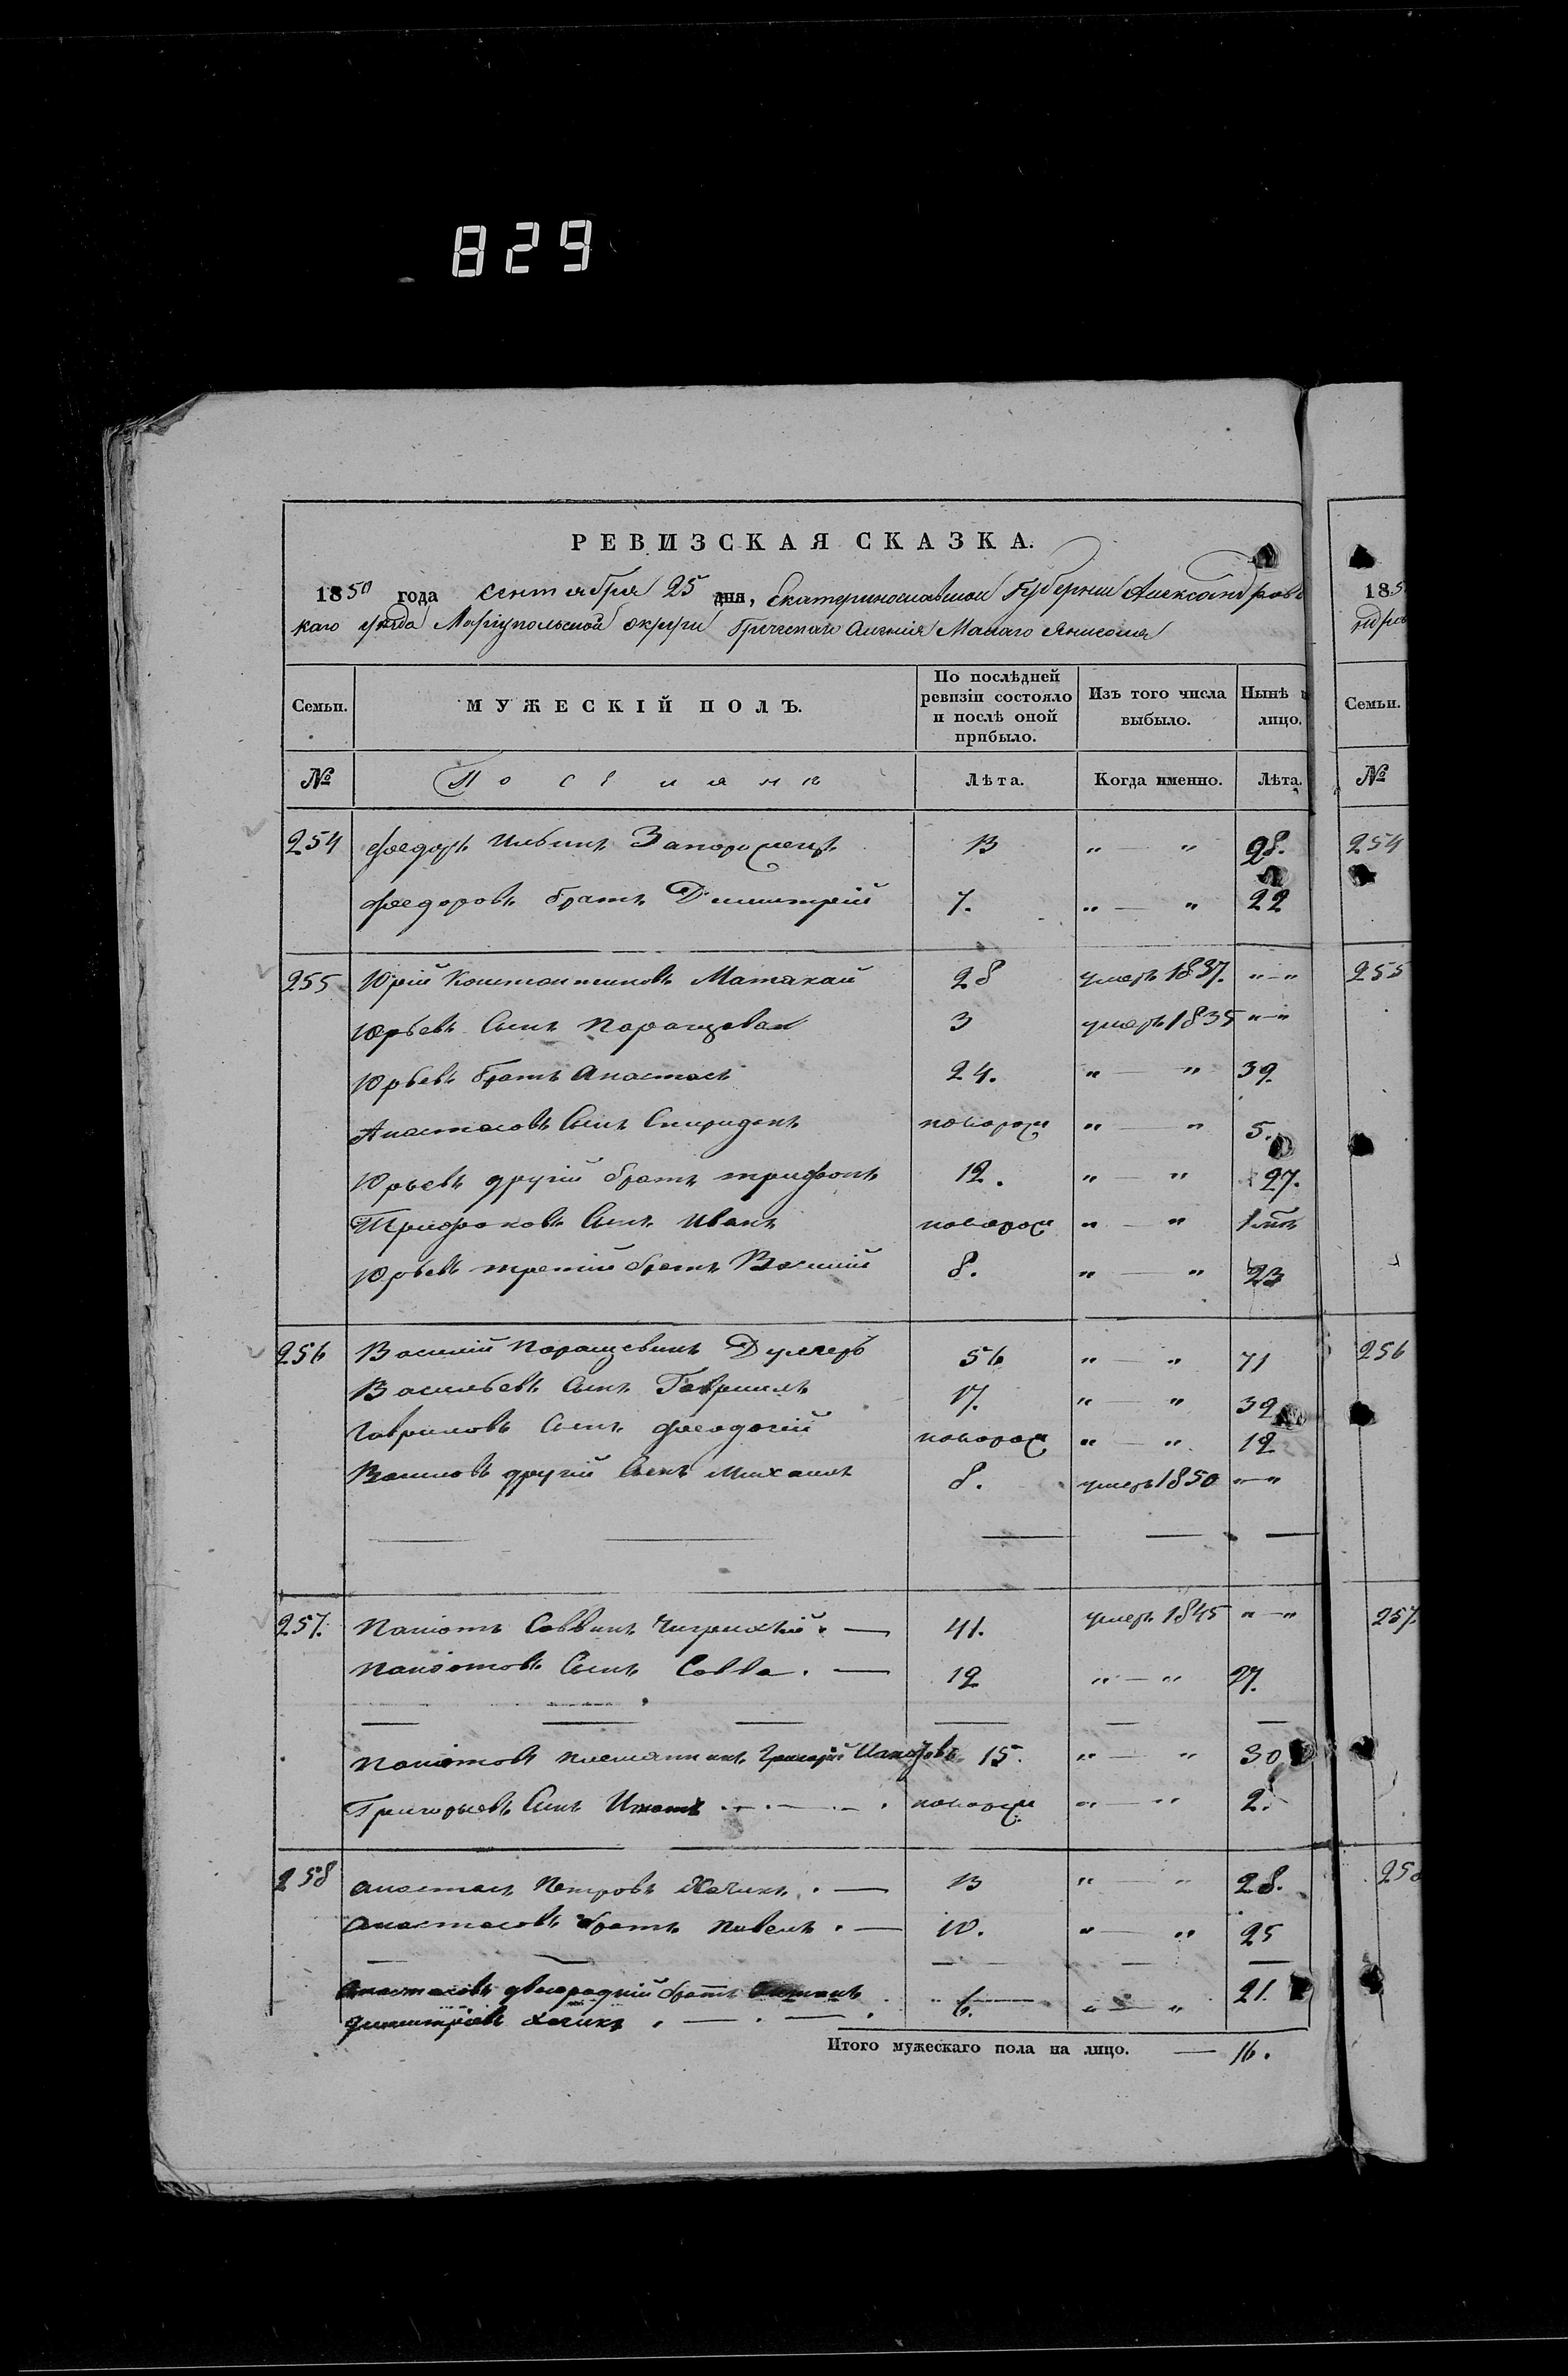 829
РЕВИЗСКАЯ СКАЗКА.
1850 года сентября 25 дня, Екатеринославской Губернии Александровс
каго уезда Маріупольской округи Греческаго селенія Малаго Янисоля
Семьи. МУЖЕСКІЙ ПОЛЪ. По послѣдней ревизіи состояло и послѣ оной прибыло. Изъ того числа выбыло. Нынѣ н лицо.
№ Поселянъ Лѣта. Когда именно. Лѣта.
254 Феодоръ Ильинъ Запорожецъ 13 „ — „ 28.
Феодоровъ братъ Димитрій 7. „ — „ 22
255 Юрій Константиновъ Матакай 28 умеръ 1837. „—„
Юрьевъ сынъ 3 умеръ 1835 „—„
Юрьевъ братъ Анастасъ 24. „ — „ 39.
Анастасовъ сынъ Спиридонъ новорож „ — „ 5.
Юрьевъ другій братъ Трифонъ 12. „ — „ 27.
Трифоновъ сынъ Иванъ новорож „ — „
Юрьевъ третій братъ Василій 8. „ — „ 23
256 Василій Дулгеръ 56 „ — „ 71
Васильевъ сынъ Гавріилъ 17. „ — „ 32
Гавриловъ сынъ Феодосій новорож „ — „ 12
Васильевъ другій сынъ Михаилъ 8. умеръ 1850 „—„
257. Паніотъ Саввинъ 41. умеръ 1845 „—„
Паніотовъ сынъ Савва. — 12 „ — „ 27.
Паніотовъ племянникъ Григорій 15. „ — „ 30
Григорьевъ сынъ новорож „ — „ 2.
258 Анастасъ Петровъ Хачикъ. — 13 „ — „ 28.
Анастасовъ братъ Павелъ. — 10. „ — „ 25
Анастасовъ двоюродній братъ 6. „ — „ 21.
Димитріевъ Хачикъ
Итого мужескаго пола на лицо. — 16.
185
ндров
Семьи.
№
254
255
256
257.
258